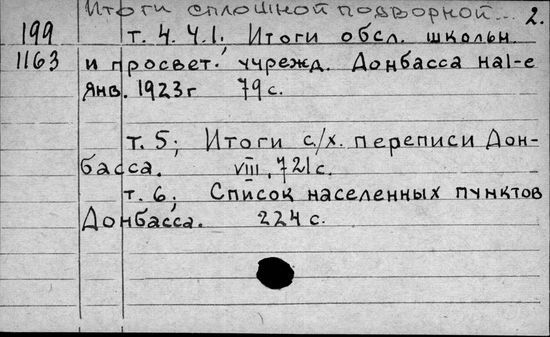 Итоги сплошной подворной... 2.
199 т. 4. Ч.1.; Итоги обсл. школьн
1163 и просвет. учрежд. Донбасса на 1-е
янв. 1923г 79 с.
т. 5; Итоги с/х. переписи Дон-
басса. VIII, 721 с.
т. 6; Список населенных пунктов
Донбасса. 224 с.